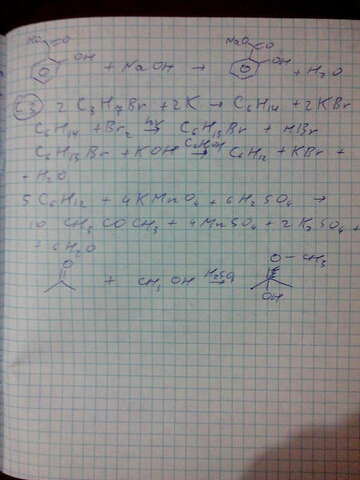 HO O NaO O
OH + NaOH → OH + H₂O
C3 2 C₃H₇Br + 2K → C₆H₁₄ + 2KBr
C₆H₁₄ + Br₂ hν→ C₆H₁₃Br + HBr
C₆H₁₃Br + KOH C₂H₅OH→ C₆H₁₂ + KBr +
+ H₂O
5 C₆H₁₂ + 4KMnO₄ + 6H₂SO₄ →
10 CH₃COCH₃ + 4MnSO₄ + 2K₂SO₄ +
+ 6H₂O
O + CH₃OH H₂SO₄→ O-CH₃
OH